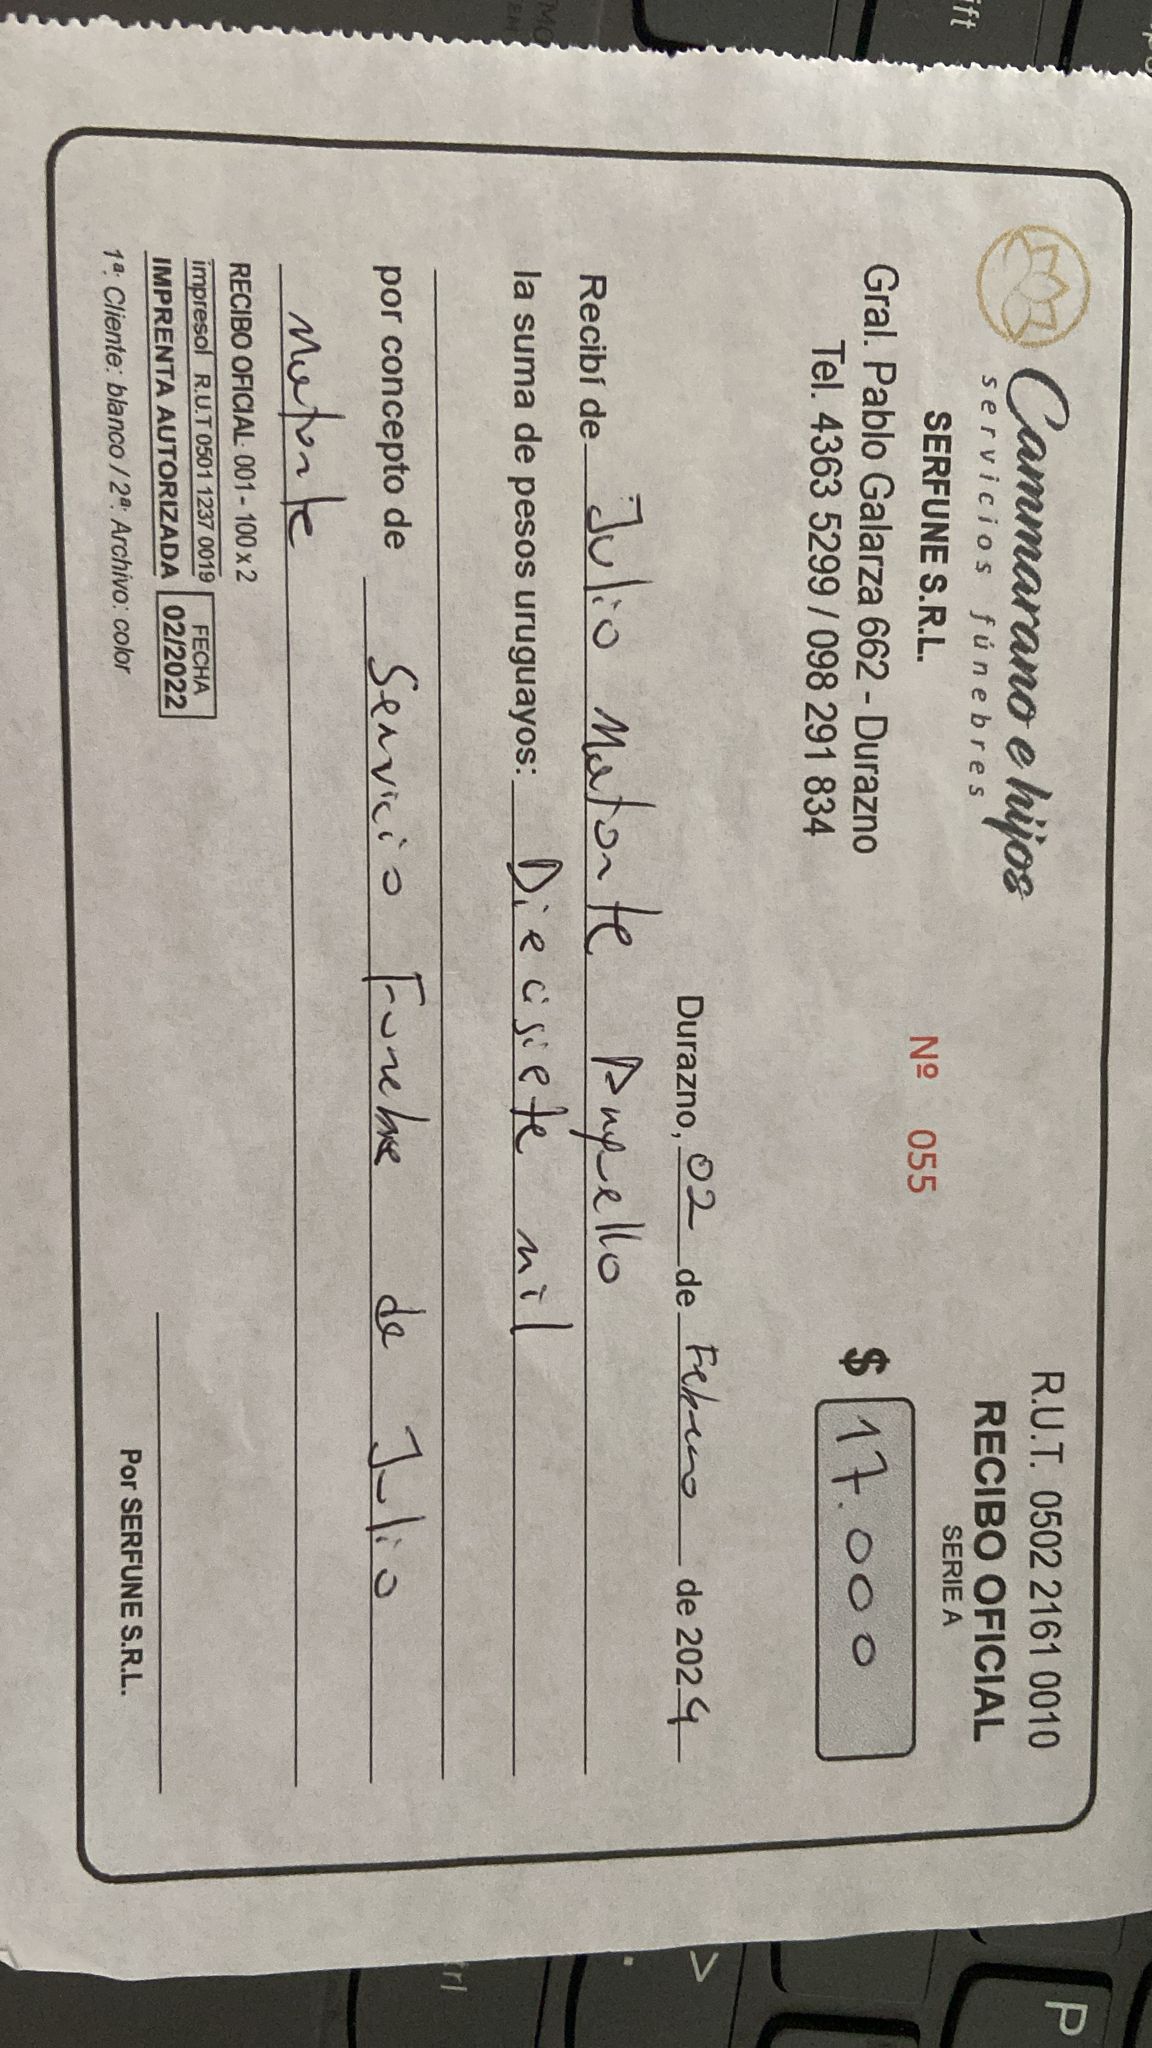 Cammarano e hijos
servicios fúnebres
SERFUNE S.R.L.
Gral. Pablo Galarza 662 - Durazno
Tel. 4363 5299 / 098 291 834
Nº 055
R.U.T. 0502 2161 0010
RECIBO OFICIAL
SERIE A
$ 17.000
Durazno, 02 de Febrero de 2024
Recibí de Julio Matonte
la suma de pesos uruguayos: Diecisiete mil
por concepto de Servicio Funebre de Julio
Matonte
RECIBO OFICIAL: 001 - 100 x 2
impresol R.U.T 0501 1237 0019
IMPRENTA AUTORIZADA
FECHA
02/2022
1ª: Cliente: blanco / 2ª: Archivo: color
Por SERFUNE S.R.L.
P
ift
>
.
trl